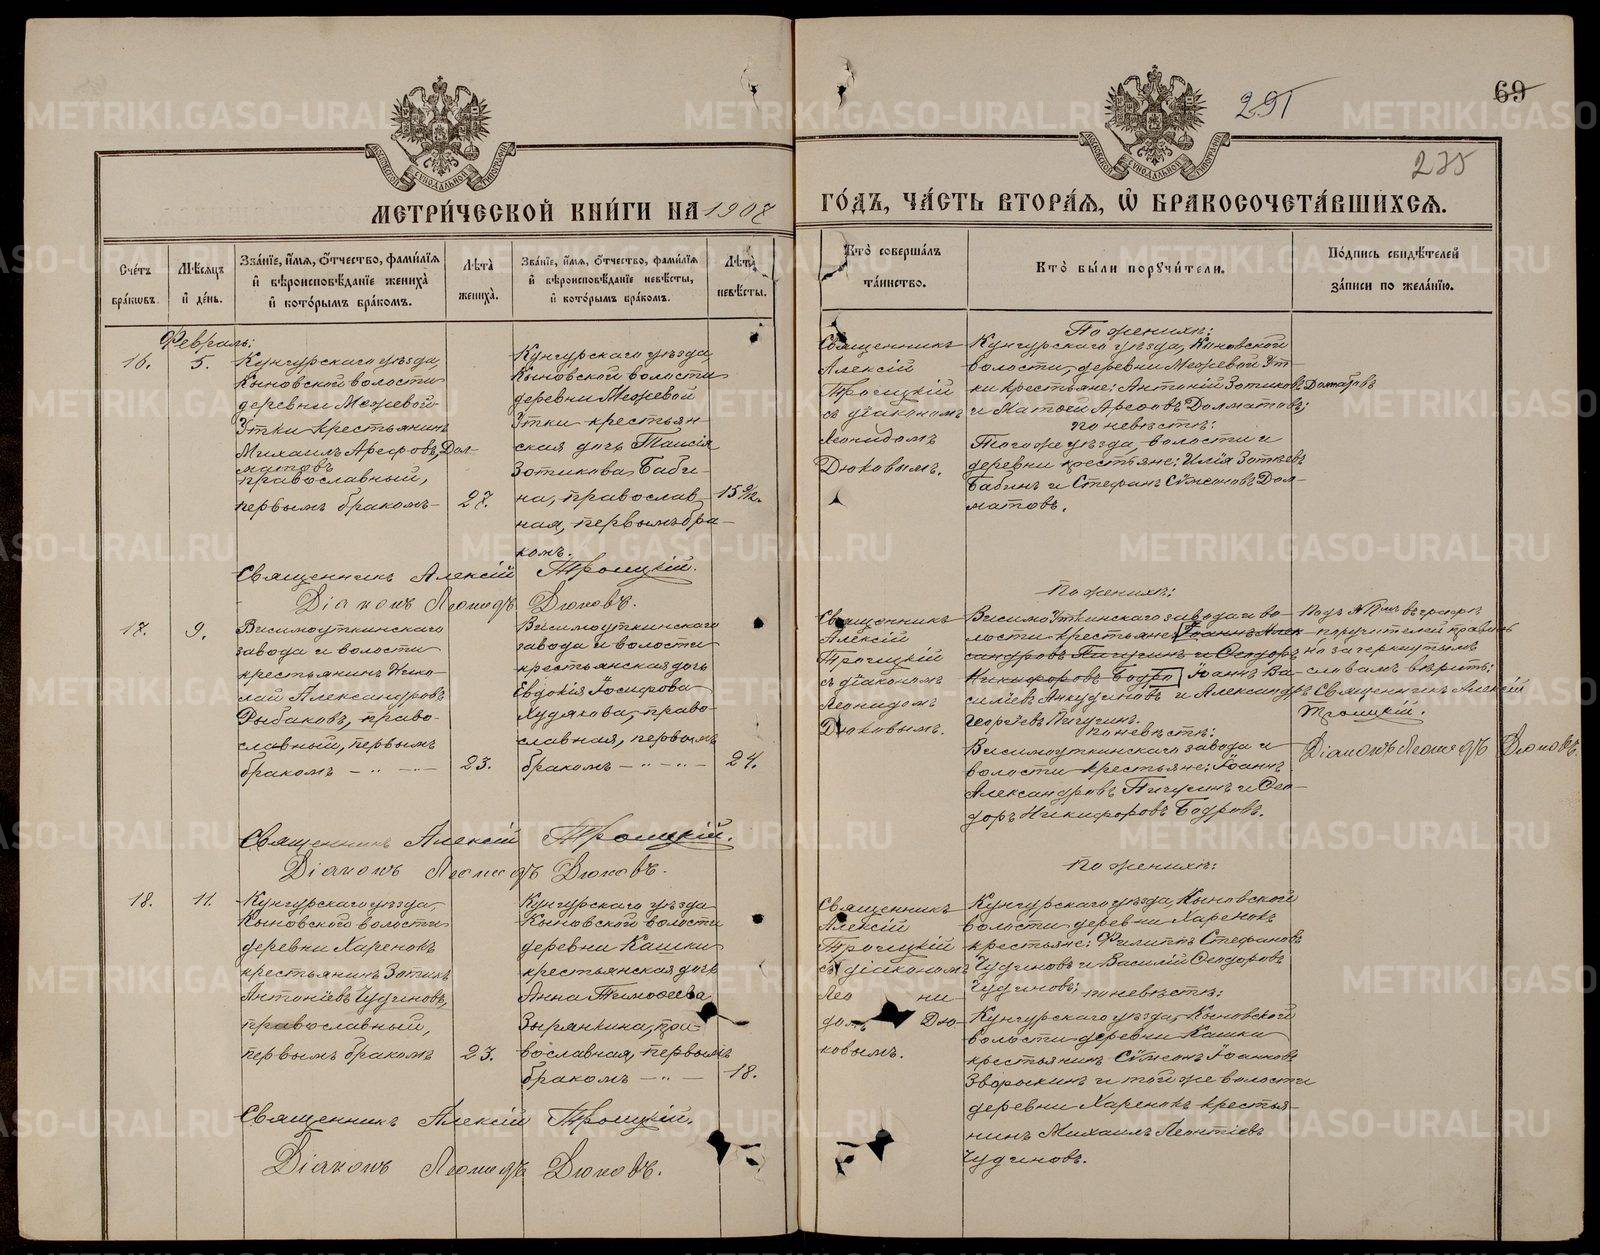 291
69
235
МЕТРИ́ЧЕСКОЙ КНИ́ГИ НА 1907
ГО́ДЪ, ЧА́СТЬ ВТОРА́Я, Ѡ БРАКОСОЧЕТА́ВШИХСЯ.
Сче́тъ бра́ковъ.
Мѣ́сяцъ и де́нь.
Зва́нїе, и́мя, о́тчество, фами́лїя и вѣроисповѣ́данїе жениха̀ и кото́рымъ бра́комъ.
Лѣта̀ жениха̀.
Зва́нїе, и́мя, о́тчество, фами́лїя и вѣроисповѣ́данїе невѣ́сты, и кото́рымъ бра́комъ.
Лѣта̀ невѣ́сты.
Кто̀ соверша́лъ та́инство.
Кто̀ бы́ли поручи́тели.
По́дпись свидѣ́телей за́писи по жела́нїю.
Февраль:
16.
5.
Кунгурскаго уѣзда,
Кыновской волости
деревни Межевой
Утки крестьянинъ
Михаилъ Арефовъ Дол-
матовъ
православный,
первымъ бракомъ
27.
Кунгурскаго уѣзда,
Кыновской волости
деревни Межевой
Утки крестьян-
ская дочь Таисія
Зотикова Баби-
на, православ
ная, первымъ бра-
комъ.
15 9/12.
Священникъ
Алексій
Троицкій
съ діакономъ
Леонидомъ
Дюковымъ.
По женихѣ:
Кунгурскаго уѣзда, Кыновской
волости, деревни Межевой Ут-
ки крестьяне: Антоній Зотиковъ Долматовъ
и Матѳей Арефовъ Долматовъ;
по невѣстѣ:
Того же уѣзда, волости и
деревни крестьяне: Илія Зотѣевъ
Бабинъ и Стефанъ Сѵмеоновъ Дол-
матовъ.
Священникъ Алексій Троицкій.
Діаконъ Леонидъ Дюковъ.
17.
9.
Висимоуткинскаго
завода и волости
крестьянинъ Нико-
лай Александровъ
Рыбаковъ, право-
славный, первымъ
бракомъ
23.
Висимоуткинскаго
завода и волости
крестьянская дочь
Евдокія Іосифова
Худякова, право-
славная, первымъ
бракомъ
24.
Священникъ
Алексій
Троицкій
съ діакономъ
Леонидомъ
Дюковымъ.
По женихѣ:
ВисимоУткинскаго завода и во-
лости крестьяне: Іоаннъ Алек-
сандровъ Пичугинъ и Ѳеодоръ
Никифоровъ Бодро Іоаннъ Ва-
силіевъ Анкудиновъ и Александръ
Георгіевъ Пичугинъ.
по невѣстѣ:
Висимоуткинскаго завода и
волости крестьяне: Іоаннъ
Александровъ Пичугинъ и Ѳео-
доръ Никифоровъ Бодровъ.
поручителей
по зачеркнутымъ
словамъ вѣрить:
Священникъ Алексій
Троицкій.
Діаконъ Леонидъ Дюковъ.
Священникъ Алексій Троицкій.
Діаконъ Леонидъ Дюковъ.
18.
11.
Кунгурскаго уѣзда,
Кыновской волости
деревни Харенокъ
крестьянинъ Зотикъ
Антоніевъ Чудиновъ,
православный,
первымъ бракомъ
23.
Кунгурскаго уѣзда
Кыновской волости
деревни Кашки
крестьянская дочь
Анна Тимоѳеева
Зырянкина, пра-
вославная, первымъ
бракомъ
18.
Священникъ
Алексій
Троицкій
съ діакономъ
Лео ни-
домъ Дю-
ковымъ.
По женихѣ:
Кунгурскаго уѣзда, Кыновской
волости деревни Харенокъ
крестьяне: Филиппъ Стефановъ
Чудиновъ и Василій Ѳеодоровъ
Чудиновъ; по невѣстѣ:
Кунгурскаго уѣзда, Кыновской
волости деревни Кашки
крестьянинъ Сѵмеонъ Іоанновъ
Зворыкинъ и той же волости
деревни Харенокъ крестья-
нинъ Михаилъ Леонтіевъ
Чудиновъ.
Священникъ Алексій Троицкій.
Діаконъ Леонидъ Дюковъ.
METRIKI.GASO-URAL.RU